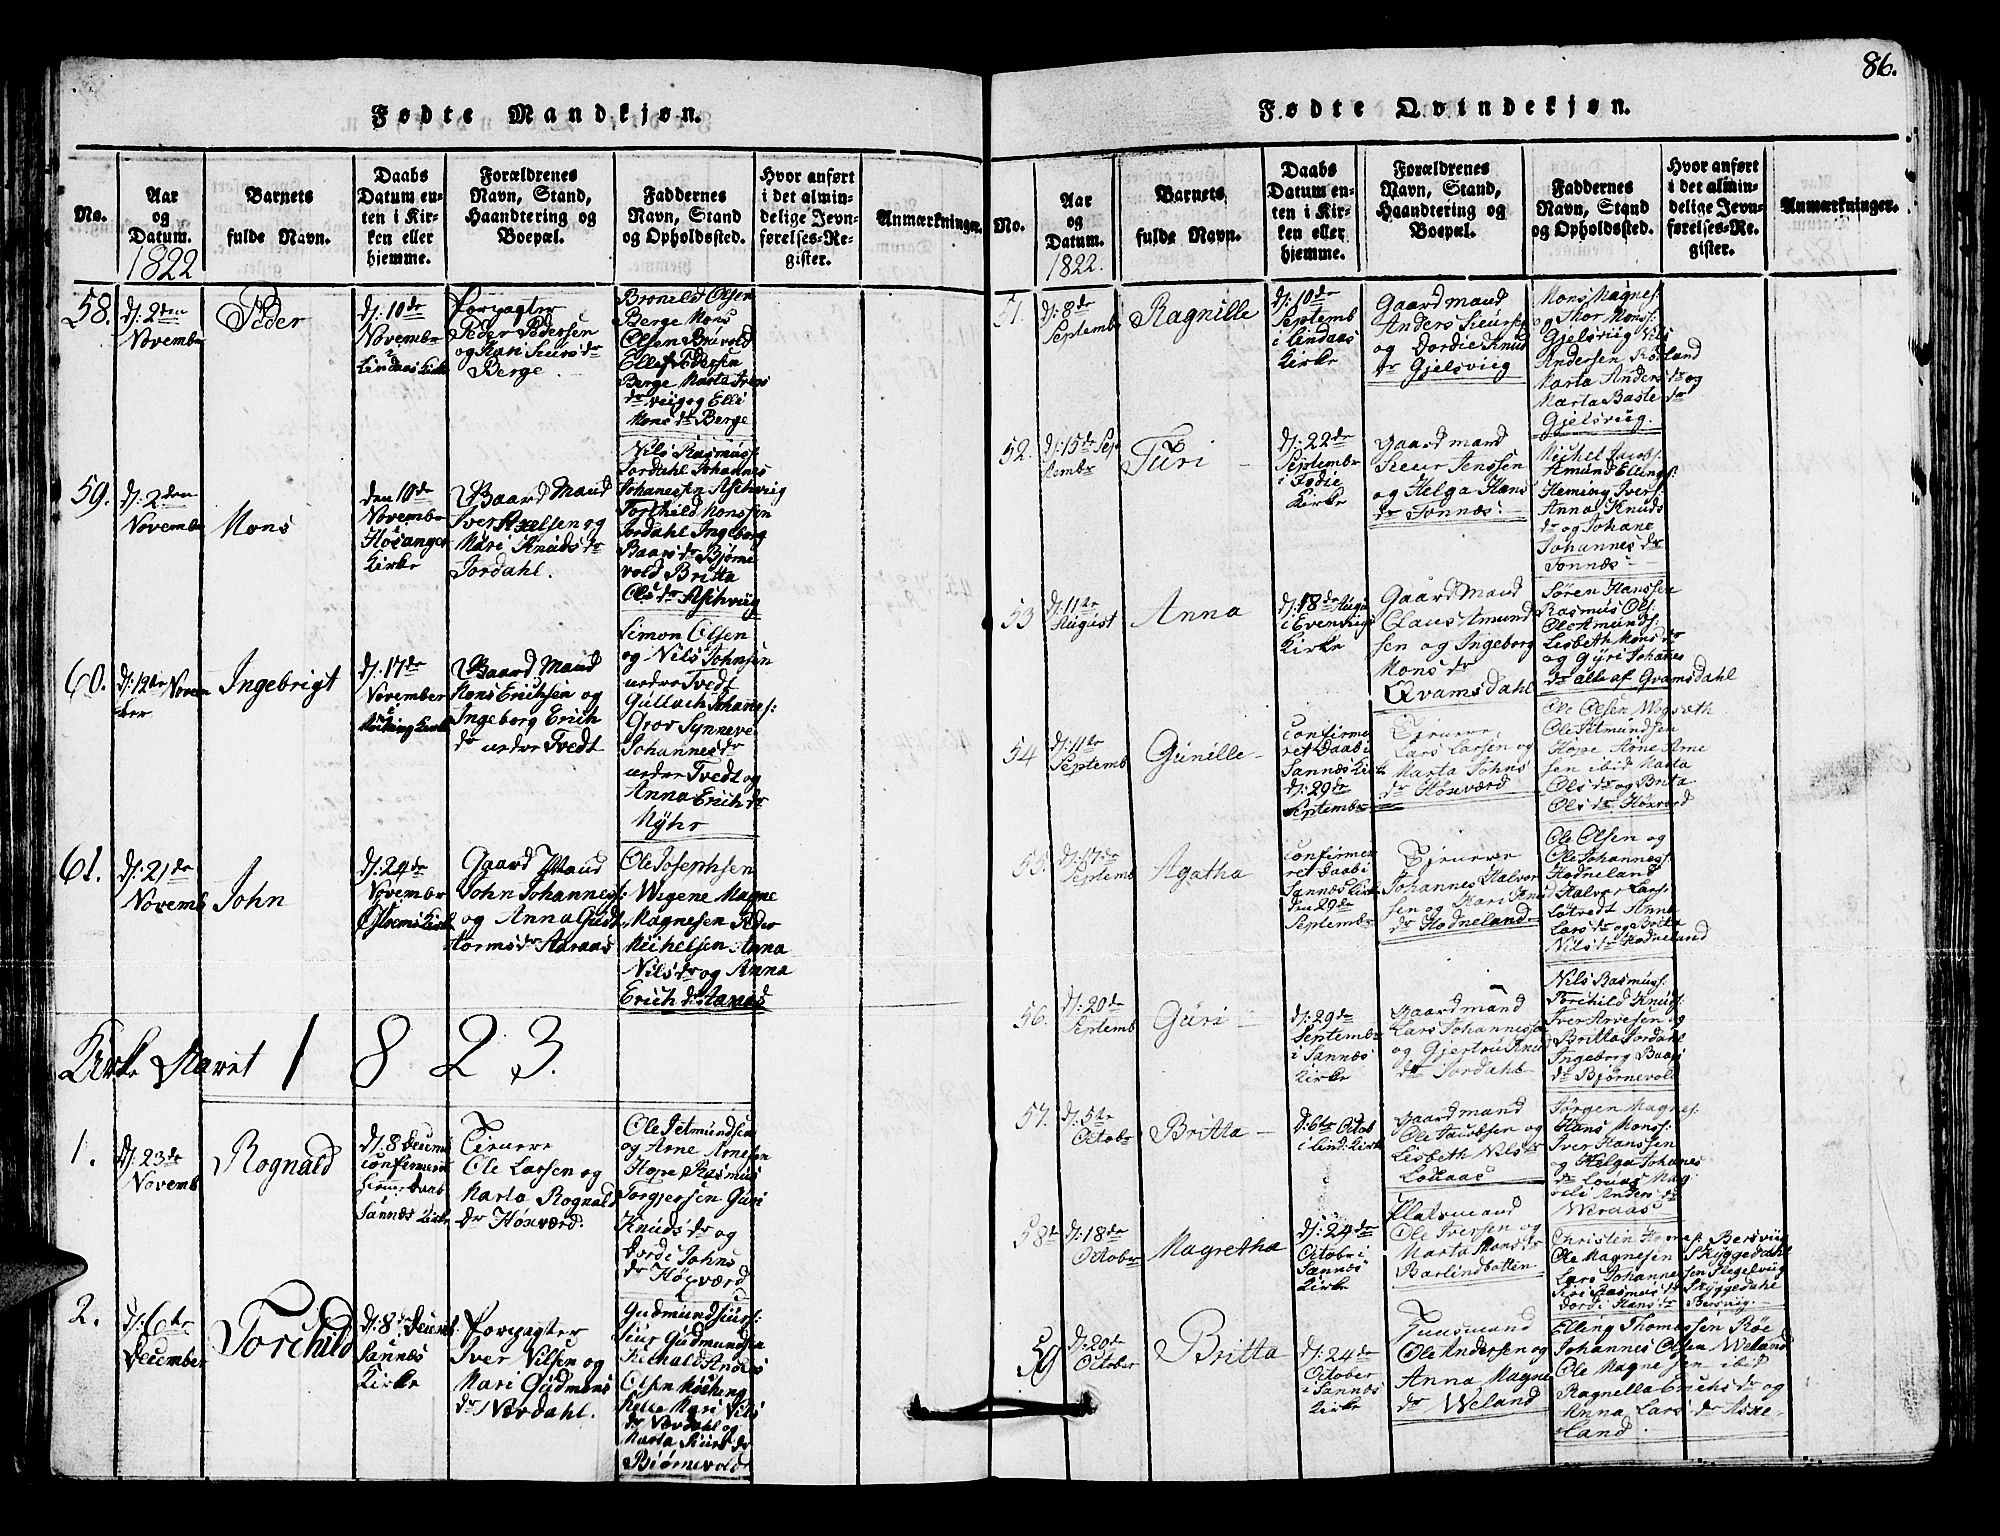 86.
Fødte Mandkjøn.
No.
Aar og Datum.
1822
Barnets fulde Navn.
Daabs Datum enten i Kirken eller hjemme.
Forældrenes Navn, Stand, Haandtering og Boepæl.
Faddernes Navn, Stand og Opholdssted.
Hvor anført i det almindelige Jevnførelses-Register.
Anmærkninger.
58.
Dj: 2den
November
Peder
Dj: 10de
November
i
Lindaas Kirke
Forpagter
Peder Pedersen
og Kari Siursdr
Berge
Olsen
Berge Mons
Olsen Bruvold
Ellef Pedersen
Berge Marta Ivers
dr viig og Elli
Mons dr Berge
59.
Dj: 2den
November
Mons
den 10de
November
Hosanger
Kirke
Gaard Mand
Iver Axelsen og
Mari Knuds dr
Jordahl.
Nils Rasmuss:
Jordahl Johannes
Johanessen Aschviig
Torchild Monssen
Jordahl Ingeborg
Baars dr Bjørne
vold Britta
Ols dr Aschviig
60.
Dj: 12te Novem
ber
Ingebrigt
Dj: 17de
November
i
Møcking Kirke
Gaard Mand
Mons Erichsen og
Ingeborg Erich
dr under Tvedt
Simon Olsen
og Nils Johnsen
under Tvedt
Gullach Johanes:
Gjov Synneve
Johannes dr
under Tvedt og
Anna Erich dr
Myhr
61.
Dj: 21de
Novemb
John
Dj: 24de
November
i
Kirke
Gaard Mand
John Johanness:
og Anna Gudt
torms dr Aaraas
Ole Josephsen
Wigene Magne
Magnesen Peder
Michelsen Anna
Nils dr og Anna
Erich dr Aaraas
Kirke Aaret 1823.
1.
Dj: 23de
Novemb
Rognald
Dj: 8 Decemb
confirmeret
hjemmedaab
Sannæs Kirke
Ole Larsen og
Marta Rognald
dr Høxværd.
Ole Petmundsen
og Arne Arnesen
Hope Rasmus
Torgjersen Guri
Knuds dr og
Dordi Johns
dr Høxværd
2.
Dj: 6te
December
Torchild
Dj: 8de Decemb
i
Sannæs
Kirke
Forpagter
Iver Nilsen og
Mari Gudmuns
dr Nordahl.
Gudmund Siurs:
Siur Gudmundsen
Anders
Olsen
Mari Nils
dr Nærdahl og
Marta Siurs dr
Bjørnevold
Fødte Qvindekjøn.
No.
Aar og Datum.
1822.
Barnets fulde Navn.
Daabs Datum enten i Kirken eller hjemme.
Forældrenes Navn, Stand, Haandtering og Boepæl.
Faddernes Navn, Stand og Opholdssted.
Hvor anført i det almindelige Jevnførelses-Register.
Anmærkninger.
51.
Dj: 8de
Septembr
Ragnille
Dj: 10de
Septemb
i Lindaas
Kirke
Gaardmand
Anders Sieurse
og Dordie Knud
dr Gjelsviig
Mons Magnes:
og Thor Mons:
Gjelsviig Nils
Andersen Rødland
Marta Anders dr og
Marta Baste dr
Gjelsviig.
52.
Dj: 15de Sep
tembr
Turi
Dj: 22de
Septembr
i Fodie
Kirke
Gaardmand
Sieur Jenssen
og Helga Hans
dr Tonnæs
Michel Jacobs:
Amund Ellings:
Heming Ivers:
Anna Knuds
dr og Johane
Johannes dr
Tonnæs
53
Dj: 11te
August
Anna
Dj: 18de Augu
i Evenvigs
Kirke
Gaardmand
Claus Amund
sen og Ingeborg
Mons dr
Qvamsdahl
Søren Hanssen
Rasmus Ols:
Ole Amunds:
Lisbeth Mons dr
og Gyri Johanes
dr alle af Qvamsdahl
54
Dj: 11te
Septemb
Gunille
confirme
ret Daab i
Sannæs Kirke
Dj: 29de
Septembr
Lars Larsen og
Marta Johns
dr Høxværd
Ole Olsen
Ole Petmundsen
Hope Arne Arne
sen ibid Marta
Ols dr og Brita
Ols dr Høxværd
55.
Dj: 17de
Septemb
Agatha
confirme
ret Daab i
Sannæs Kirke
den 29de
Septembr
Johannes Halvor
sen og Kari Knud
dr Hodneland
Ole Olsen og
Ole Johanness:
Hodneland
Halvor Lars:
Løtvedt Anna
Lars dr og Britta
Nils dr Hodneland
56.
Dj: 20de
Septemb
Guri
Dj: 29de
Septembr
i Sannæs
Kirke
Gaardmand
Lars Johannesse
og Gjertru Knud
dr Jordahl
Nils Rasmus:
Torchild Knus:
Iver Arvesen og
Britta Jordahl
Ingeborg Baar
dr Bjørnevold
57.
Dj: 5te
Octobr
Britta
D: 6te Octob
i Lind: Kirke
Gaardmand
Ole Jacobsen og
Lisbeth Nils dr
Louaas
Jørgen Magnes:
Hans Mons:
Iver Hanssen
og Helga Johanes
dr Louaas Mag
Anders dr
58
Dj: 18de
October
Magretha
Dj: 24de
October i
Sannæs
Kirke
Platsmand
Ole Iversen og
Marta Mons dr
Barlindbotten
Christen Bersviig
Ole Magnesen Skyggedahl
Lars Johannessen
Siri Rasmus dr Skyggedahl
Dordi Hans dr Bersviig.
59
Dj: 20de
October
Britta
Dj: 24de
October
i Sannæs
Kirke
Huusmand
Ole Andersen og
Anna Magne
dr Weland
Elling Thomessen
Johannes Olsen Weland
Ole Magnesen ibid
Ragnella Erichs dr og
Anna Lars dr Aske
land